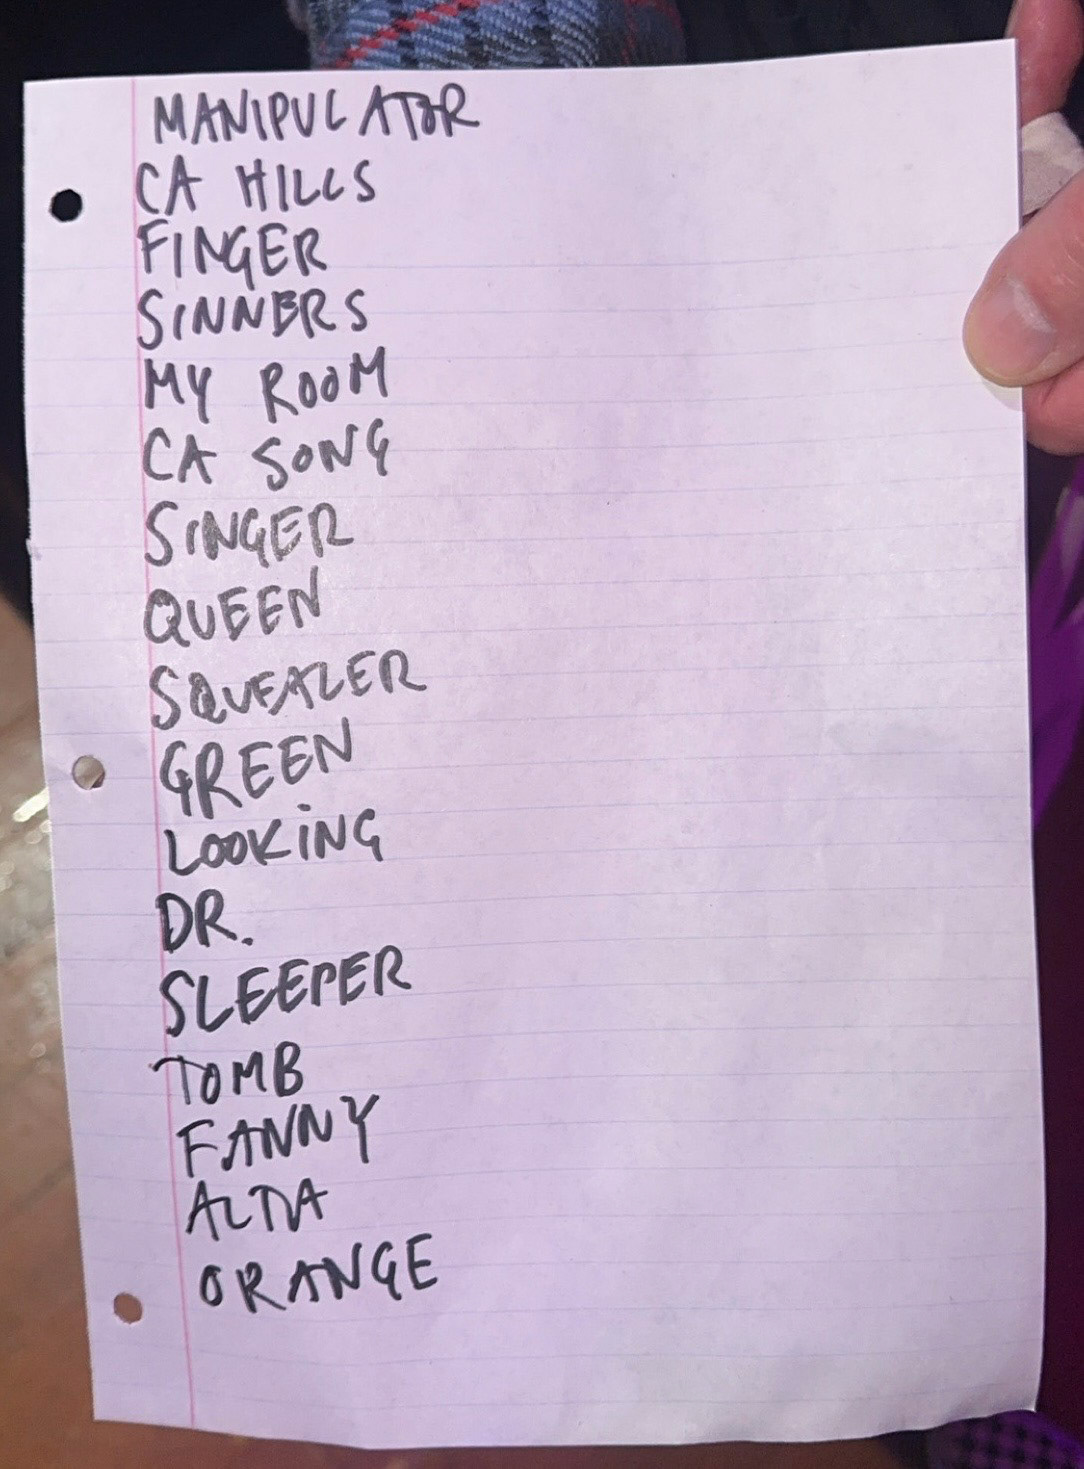 MANIPULATOR
CA HILLS
FINGER
SINNERS
MY ROOM
CA SONG
SINGER
QUEEN
SQUEALER
GREEN
LOOKING
DR.
SLEEPER
TOMB
FANNY
ALTA
ORANGE